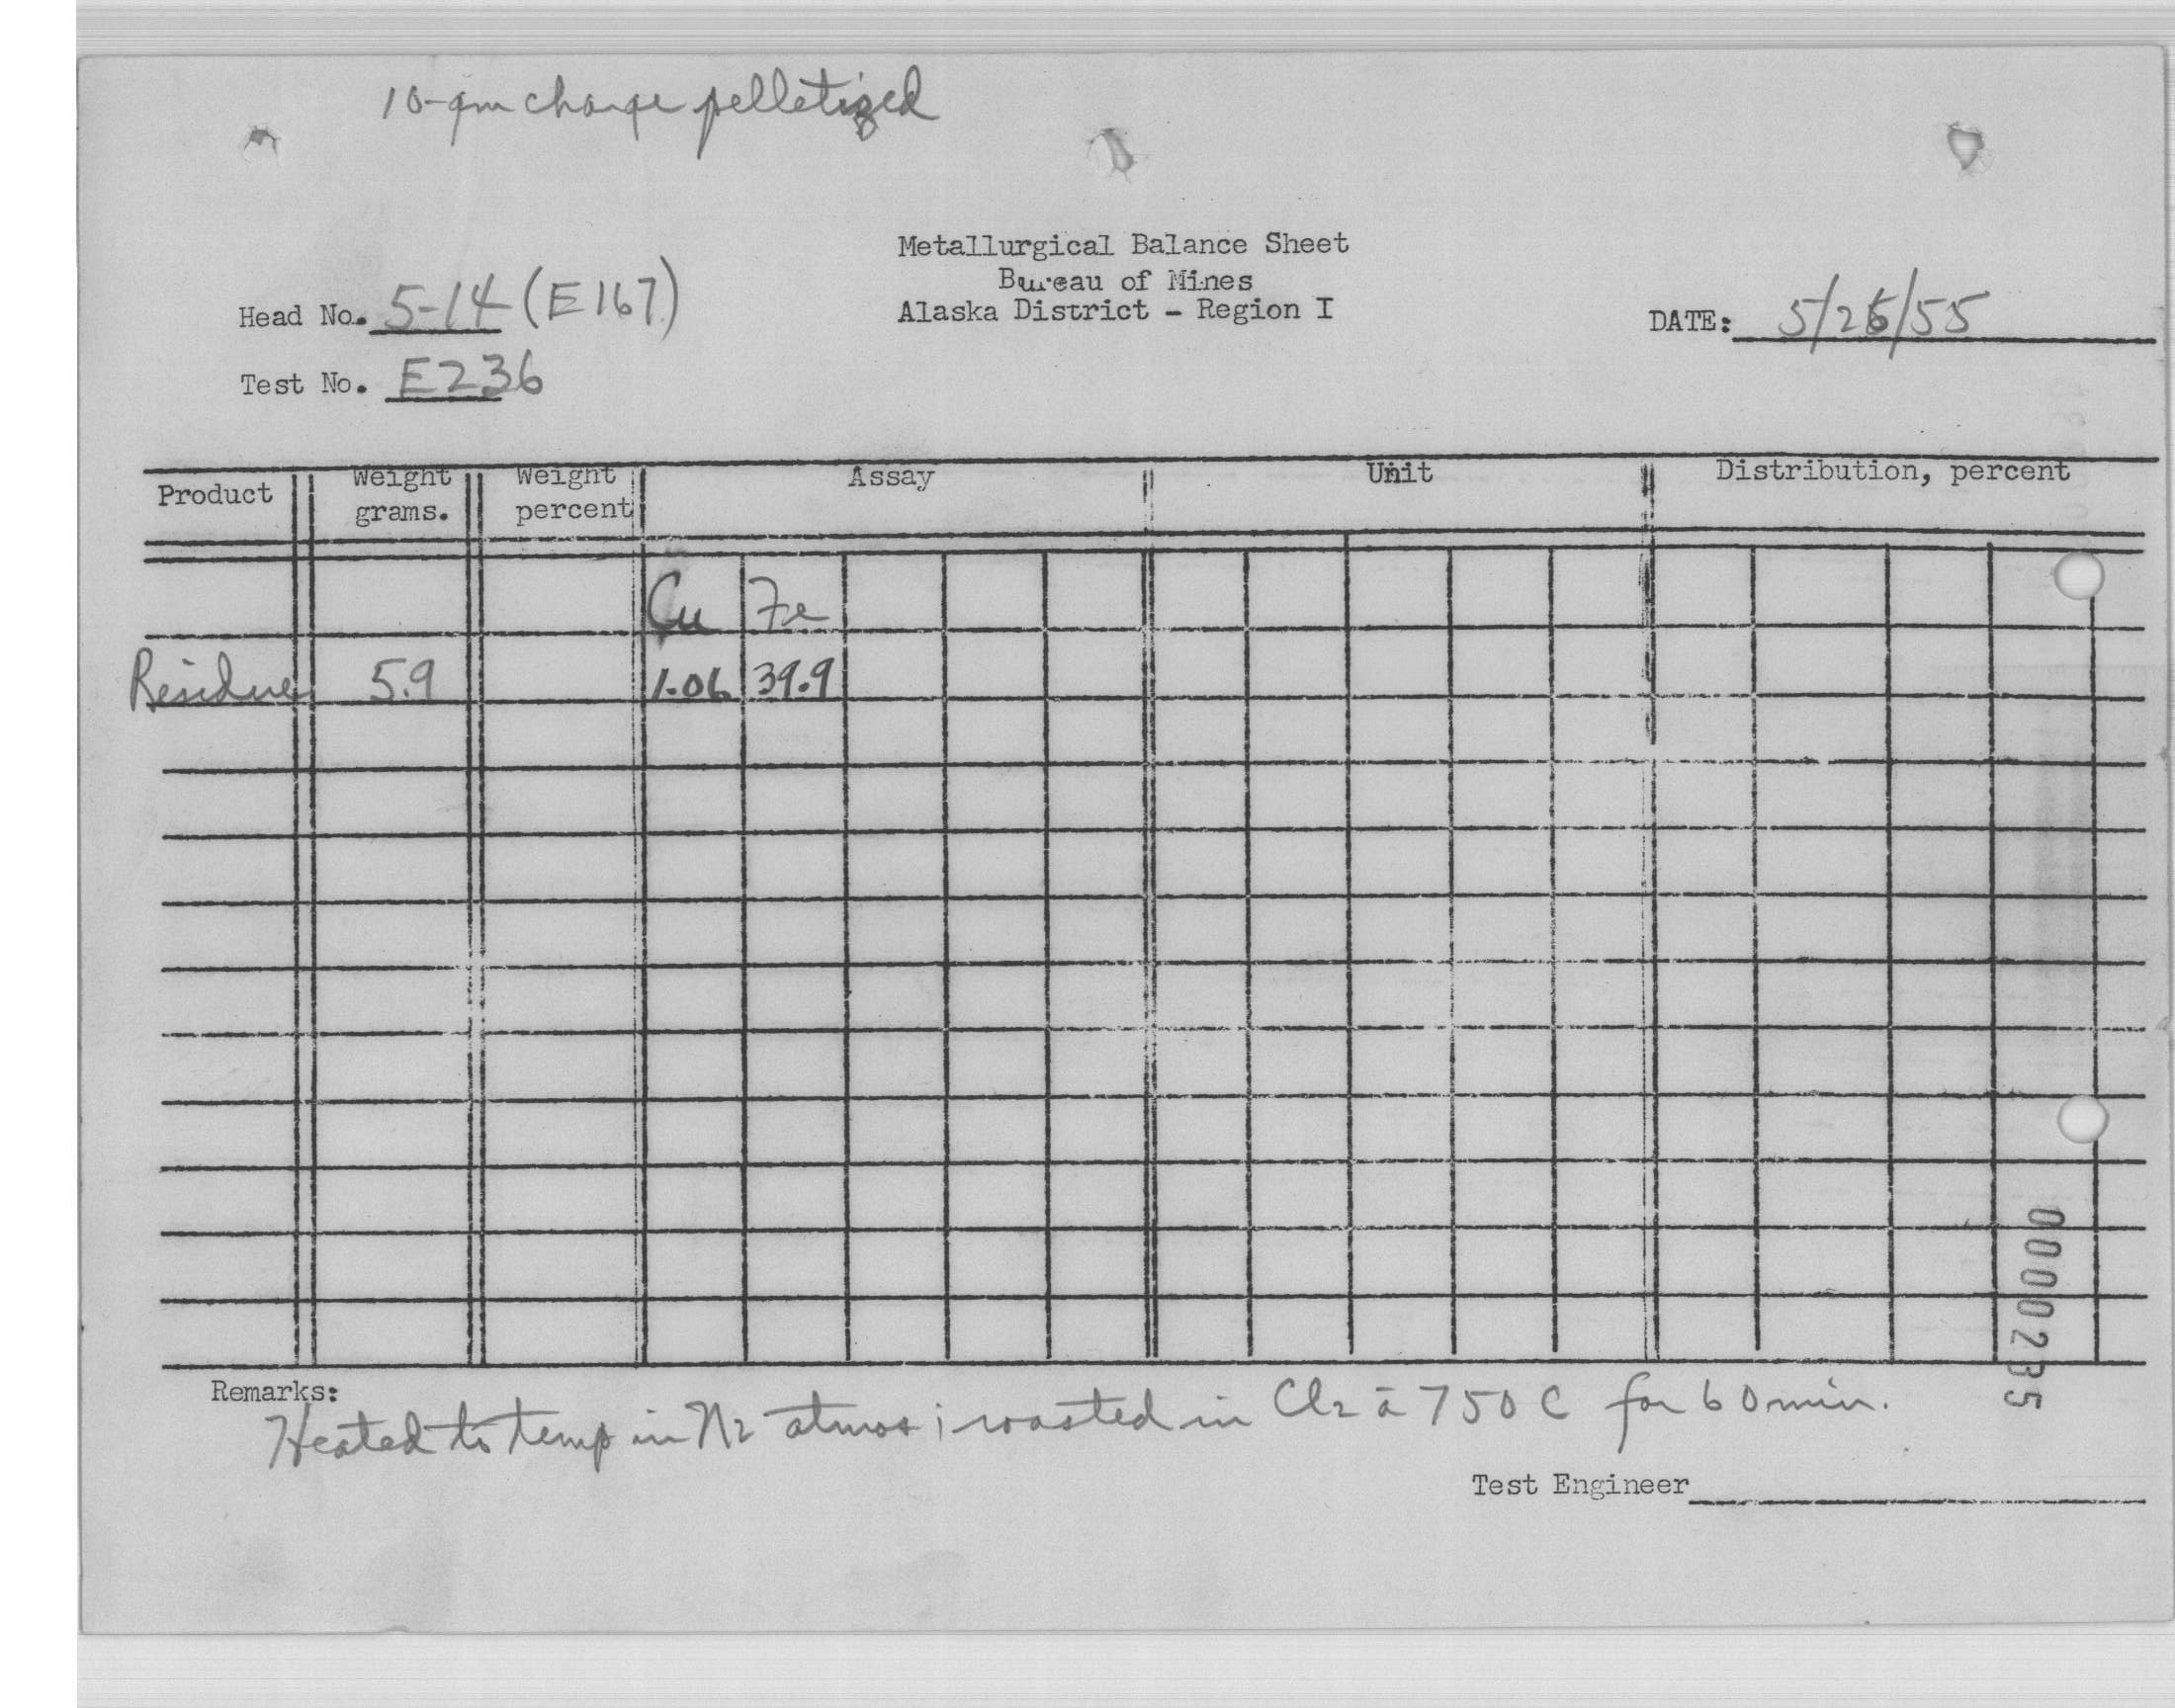 10-gm charge pelletized
Metallurgical Balance Sheet
Bureau of Mines
Alaska District - Region I
Head No. 5-14 (E167)
DATE: 5/26/55
Test No. E236
Product Weight grams. Weight percent Assay Unit Distribution, percent
Cu Fe
Residue 5.9 1.06 39.9
0000235
Remarks:
Heated to temp in N2 atmos; roasted in Cl2 ā 750 C for 60 min.
Test Engineer